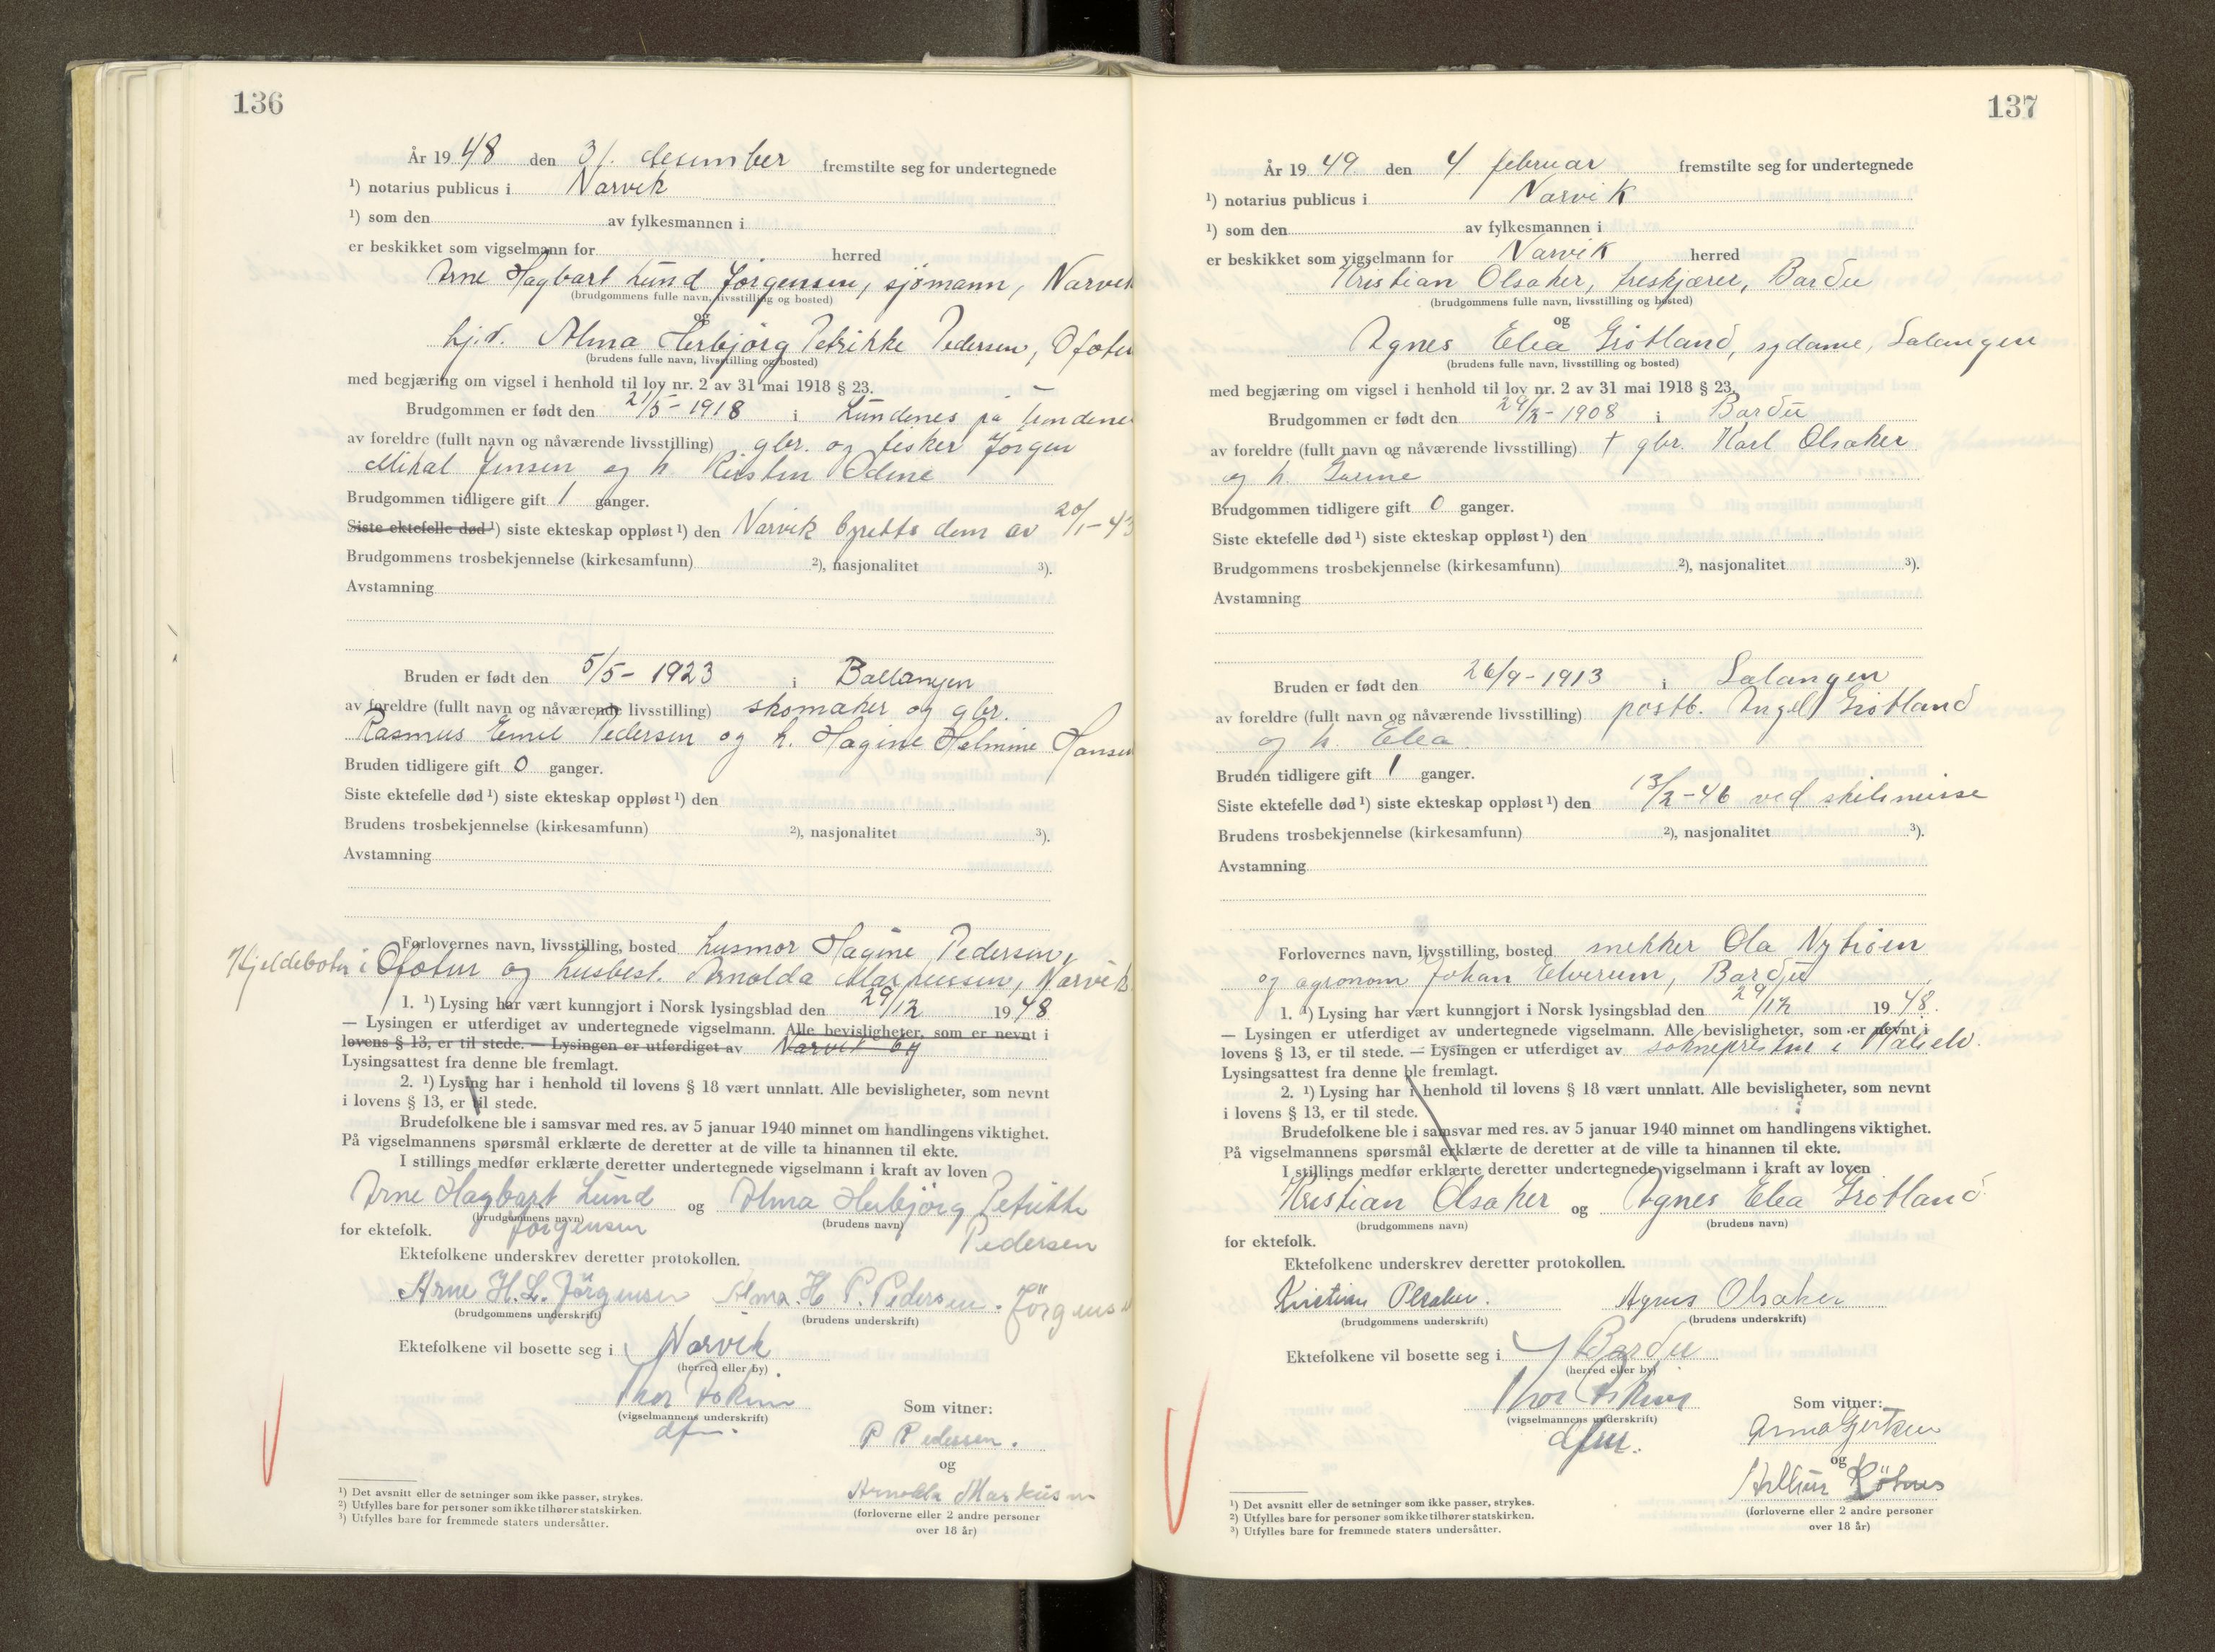 136
År 1948 den 31. desember fremstilte seg for undertegnede
¹) notarius publicus i Narvik
¹) som den av fylkesmannen i
er beskikket som vigselmann for herred
Arne Hagbart Lund Jørgensen, sjømann, Narvik
(brudgommens fulle navn, livsstilling og bosted)
og
hj.d. Alma Herbjørg Petrikke Pedersen, Ofoten
(brudens fulle navn, livsstilling og bosted)
med begjæring om vigsel i henhold til lov nr. 2 av 31 mai 1918 § 23.
Brudgommen er født den 21/5-1918 i Lundenes på
av foreldre (fullt navn og nåværende livsstilling) gbr. og fisker Jørgen
Mikal Jensen og h. Kirsten Odine
Brudgommen tidligere gift 1 ganger.
Siste ektefelle død ¹) siste ekteskap oppløst ¹) den Narvik byretts dom av 20/1-43
Brudgommens trosbekjennelse (kirkesamfunn) ²), nasjonalitet ³).
Avstamning
Bruden er født den 5/5-1923 i Ballangen
av foreldre (fullt navn og nåværende livsstilling) skomaker og gbr.
Rasmus Emil Pedersen og h. Hagine Helmine Hansen
Bruden tidligere gift 0 ganger.
Siste ektefelle død ¹) siste ekteskap oppløst ¹) den
Brudens trosbekjennelse (kirkesamfunn) ²), nasjonalitet ³).
Avstamning
Forlovernes navn, livsstilling, bosted husmor Hagine Pedersen,
Kjeldebotn i Ofoten og husbest. Arnolda Markussen, Narvik
1. ¹) Lysing har vært kunngjort i Norsk lysingsblad den 29/12 1948
— Lysingen er utferdiget av undertegnede vigselmann. Alle bevisligheter, som er nevnt i
lovens § 13, er til stede. — Lysingen er utferdiget av Narvik by
Lysingsattest fra denne ble fremlagt.
2. ¹) Lysing har i henhold til lovens § 18 vært unnlatt. Alle bevisligheter, som nevnt
i lovens § 13, er til stede.
Brudefolkene ble i samsvar med res. av 5 januar 1940 minnet om handlingens viktighet.
På vigselmannens spørsmål erklærte de deretter at de ville ta hinannen til ekte.
I stillings medfør erklærte deretter undertegnede vigselmann i kraft av loven
Arne Hagbart Lund og Alma Herbjørg Petrikke
(brudgommens navn) (brudens navn)
for ektefolk. Jørgensen Pedersen
Ektefolkene underskrev deretter protokollen.
Arne H. L. Jörgensen Alma. H P. Pedersen. Jörgensen
(brudgommens underskrift) (brudens underskrift)
Ektefolkene vil bosette seg i Narvik
(herred eller by)
Thor
(vigselmannens underskrift)
dfm.
Som vitner:
P Pedersen.
og
Arnolda Markussen
(forloverne eller 2 andre personer
over 18 år)
¹) Det avsnitt eller de setninger som ikke passer, strykes.
²) Utfylles bare for personer som ikke tilhører statskirken.
³) Utfylles bare for fremmede staters undersåtter.
137
År 1949 den 4 februar fremstilte seg for undertegnede
¹) notarius publicus i Narvik
¹) som den av fylkesmannen i
er beskikket som vigselmann for Narvik herred
Kristian Olsaker, treskjærer, Bardu
(brudgommens fulle navn, livsstilling og bosted)
og
Agnes Elea Grötland, sydame, Salangen
(brudens fulle navn, livsstilling og bosted)
med begjæring om vigsel i henhold til lov nr. 2 av 31 mai 1918 § 23.
Brudgommen er født den 29/2-1908 i Bardu
av foreldre (fullt navn og nåværende livsstilling) † gbr. Karl Olsaker
og h.
Brudgommen tidligere gift 0 ganger.
Siste ektefelle død ¹) siste ekteskap oppløst ¹) den
Brudgommens trosbekjennelse (kirkesamfunn) ²), nasjonalitet ³).
Avstamning
Bruden er født den 26/9-1913 i Salangen
av foreldre (fullt navn og nåværende livsstilling) postb. Ingel Grötland
og h. Elea.
Bruden tidligere gift 1 ganger.
Siste ektefelle død ¹) siste ekteskap oppløst ¹) den 13/2-46 ved skilsmisse
Brudens trosbekjennelse (kirkesamfunn) ²), nasjonalitet ³).
Avstamning
Forlovernes navn, livsstilling, bosted snekker Ola Nytrøen
og agronom Johan Elverum, Bardu
1. ¹) Lysing har vært kunngjort i Norsk lysingsblad den 29/12 1948.
— Lysingen er utferdiget av undertegnede vigselmann. Alle bevisligheter, som er nevnt i
lovens § 13, er til stede. — Lysingen er utferdiget av soknepresten i Målselv.
Lysingsattest fra denne ble fremlagt.
2. ¹) Lysing har i henhold til lovens § 18 vært unnlatt. Alle bevisligheter, som nevnt
i lovens § 13, er til stede.
Brudefolkene ble i samsvar med res. av 5 januar 1940 minnet om handlingens viktighet.
På vigselmannens spørsmål erklærte de deretter at de ville ta hinannen til ekte.
I stillings medfør erklærte deretter undertegnede vigselmann i kraft av loven
Kristian Olsaker og Agnes Elea Grötland
(brudgommens navn) (brudens navn)
for ektefolk.
Ektefolkene underskrev deretter protokollen.
Kristian Olsaker. Agnes Olsaker
(brudgommens underskrift) (brudens underskrift)
Ektefolkene vil bosette seg i Bardu
(herred eller by)
Thor
(vigselmannens underskrift)
dfm.
Som vitner:
Anna Gjertsen
og
(forloverne eller 2 andre personer
over 18 år)
¹) Det avsnitt eller de setninger som ikke passer, strykes.
²) Utfylles bare for personer som ikke tilhører statskirken.
³) Utfylles bare for fremmede staters undersåtter.